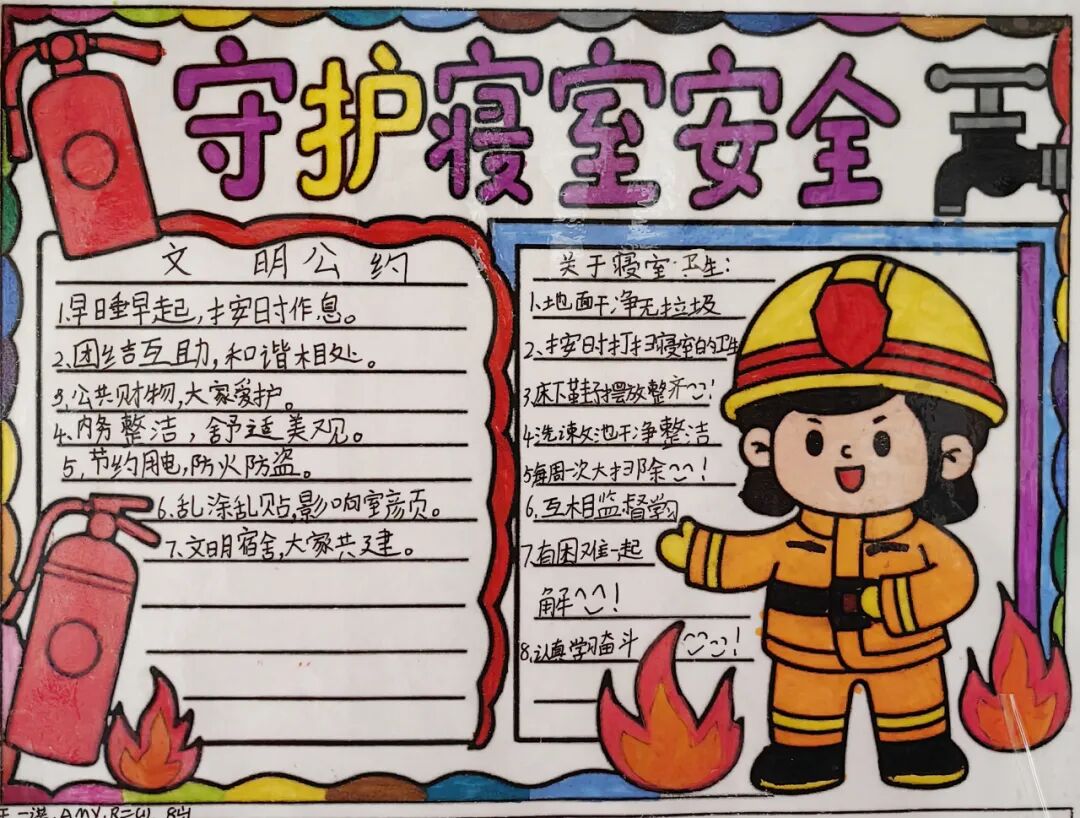 守护寝室安全
文明公约
1.早日睡早起,按时作息。
2.团结互助,和谐相处。
3.公共财物,大家爱护。
4.内务整洁,舒适美观。
5.节约用电,防火防盗。
6.乱涂乱贴,影响室彦页。
7.文明宿舍,大家共建。
关于寝室卫生:
1.地面干净无垃圾
2.按时打扫寝室的卫生
3.床下鞋子摆放整齐!
4.洗漱池干净整洁
5.每周一次大扫除!
6.互相监督学习
7.有困难一起
解!
8.认真学习奋斗!